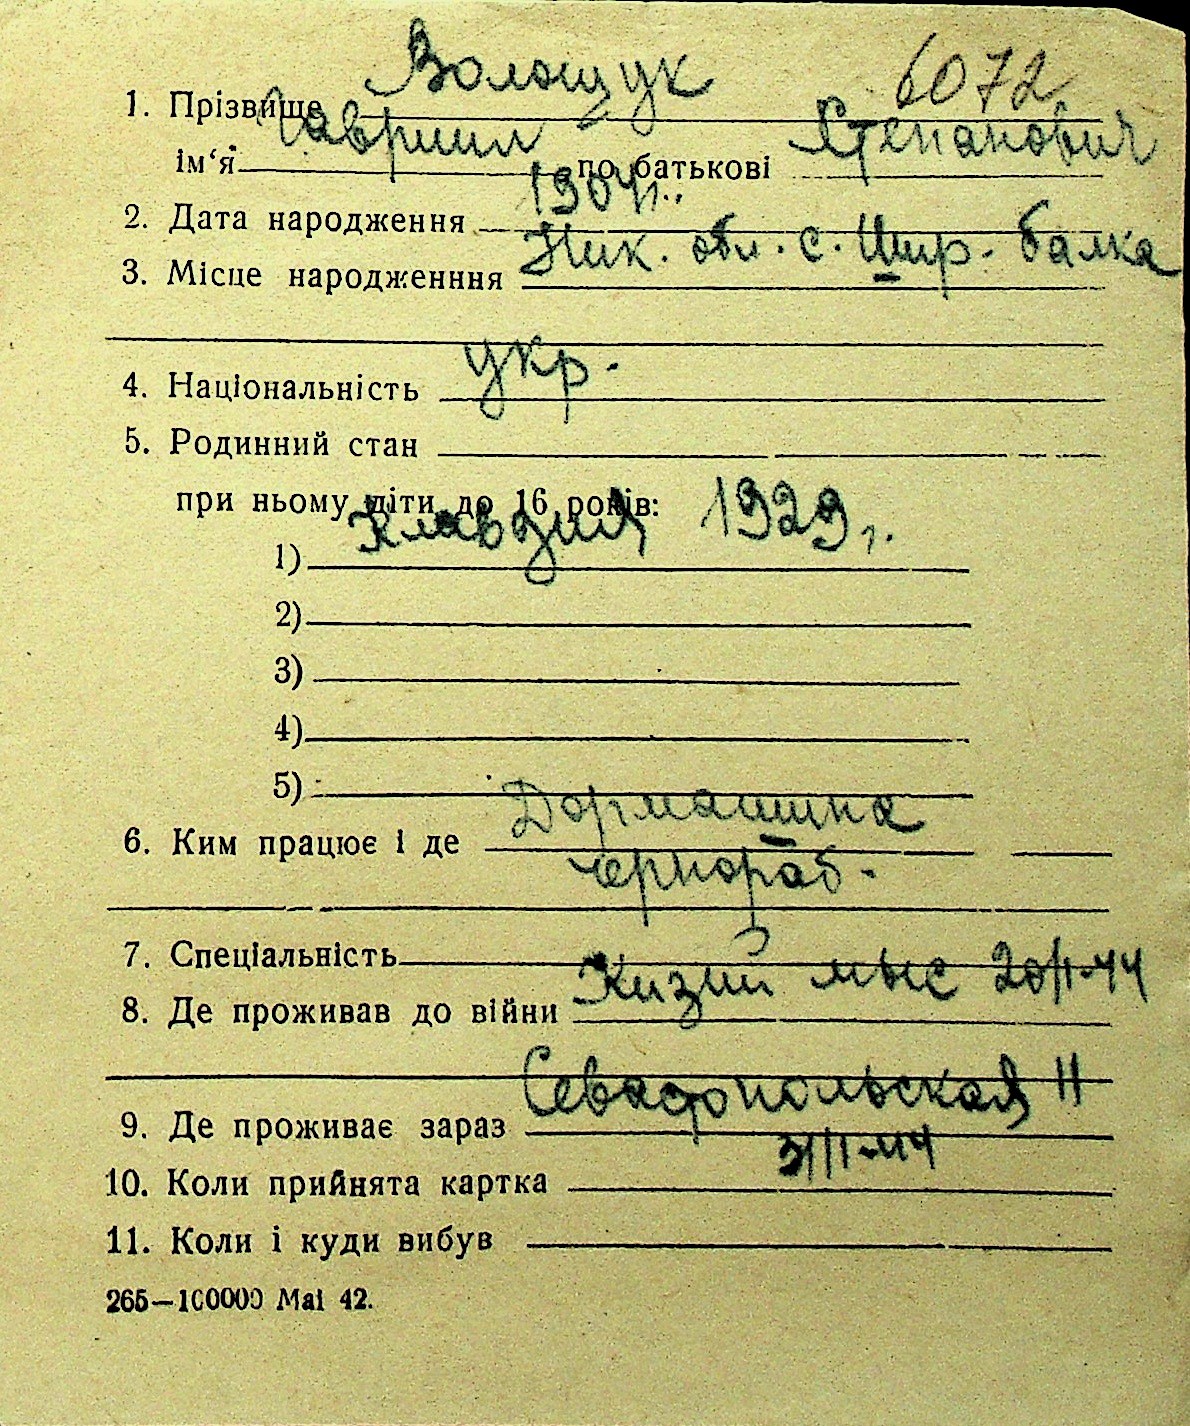 Волощук 6072
1. Прізвище
Гавриил Степанович
ім‘я по батькові
1904г.
2. Дата народження
Ник. обл. с. Шир. балка
3. Місце народженння
укр.
4. Національність
5. Родинний стан
при ньому діти до 16 років:
Клавдия 1929 г.
1)
2)
3)
4)
5)
Дормашина
6. Ким працює і де
чернораб.
7. Спеціальність
Кизий мыс 20/II-44
8. Де проживав до війни
Севастопольская 11
9. Де проживає зараз
/II-44
10. Коли прийнята картка
11. Коли і куди вибув
265—100000 Mai 42.